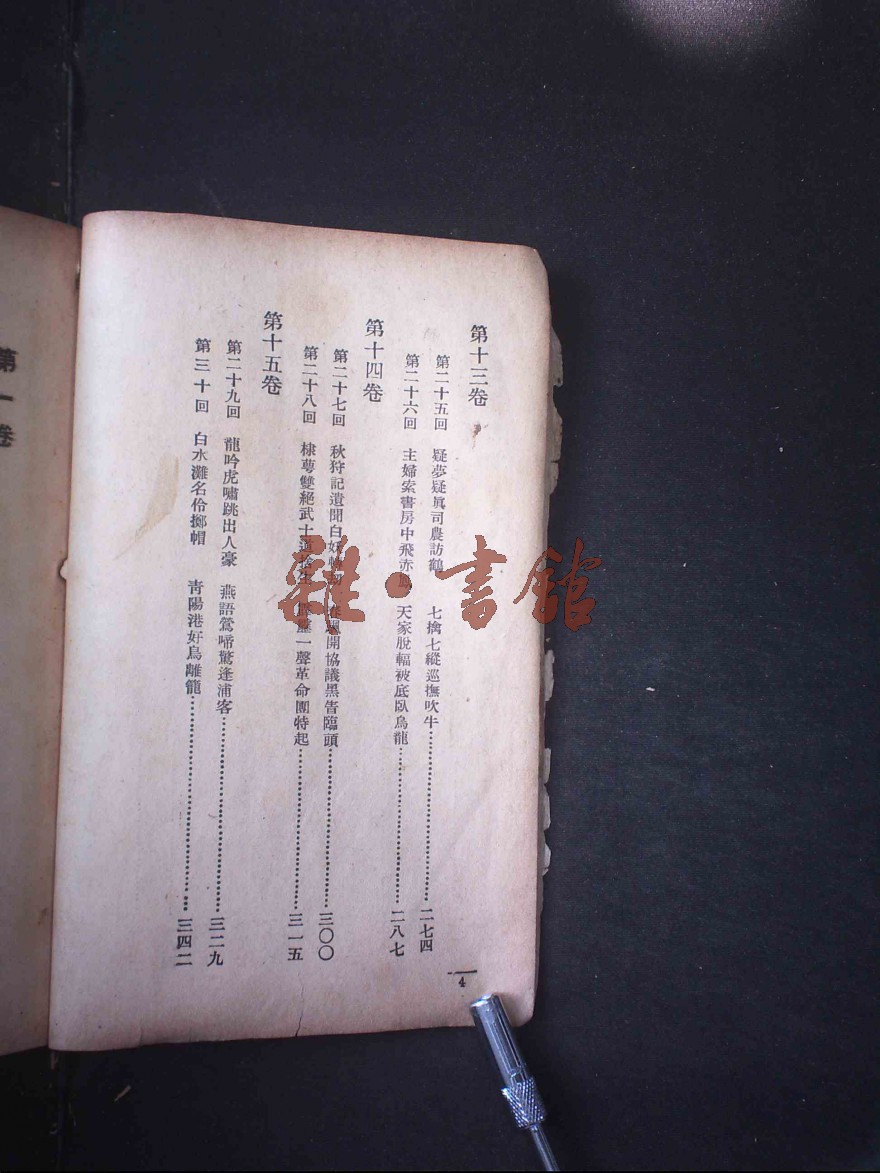 第十三卷
第二十五回 疑夢疑眞司農訪鶴 七擒七縱巡撫吹牛 二七四
第二十六回 主婦索書房中飛赤鳳 天家脫輻被底臥烏龍 二八七
第十四卷
第二十七回 秋狩記遺聞白妖 開協議黑眚臨頭 三〇〇
第二十八回 棣萼雙絕武士道 一聲革命團特起 三一五
第十五卷
第二十九回 龍吟虎嘯跳出人豪 燕語鶯啼驚逢浦客 三二九
第三十回 白水灘名伶擲帽 靑陽港好鳥離籠 三四二
4
第一卷
雜·書館